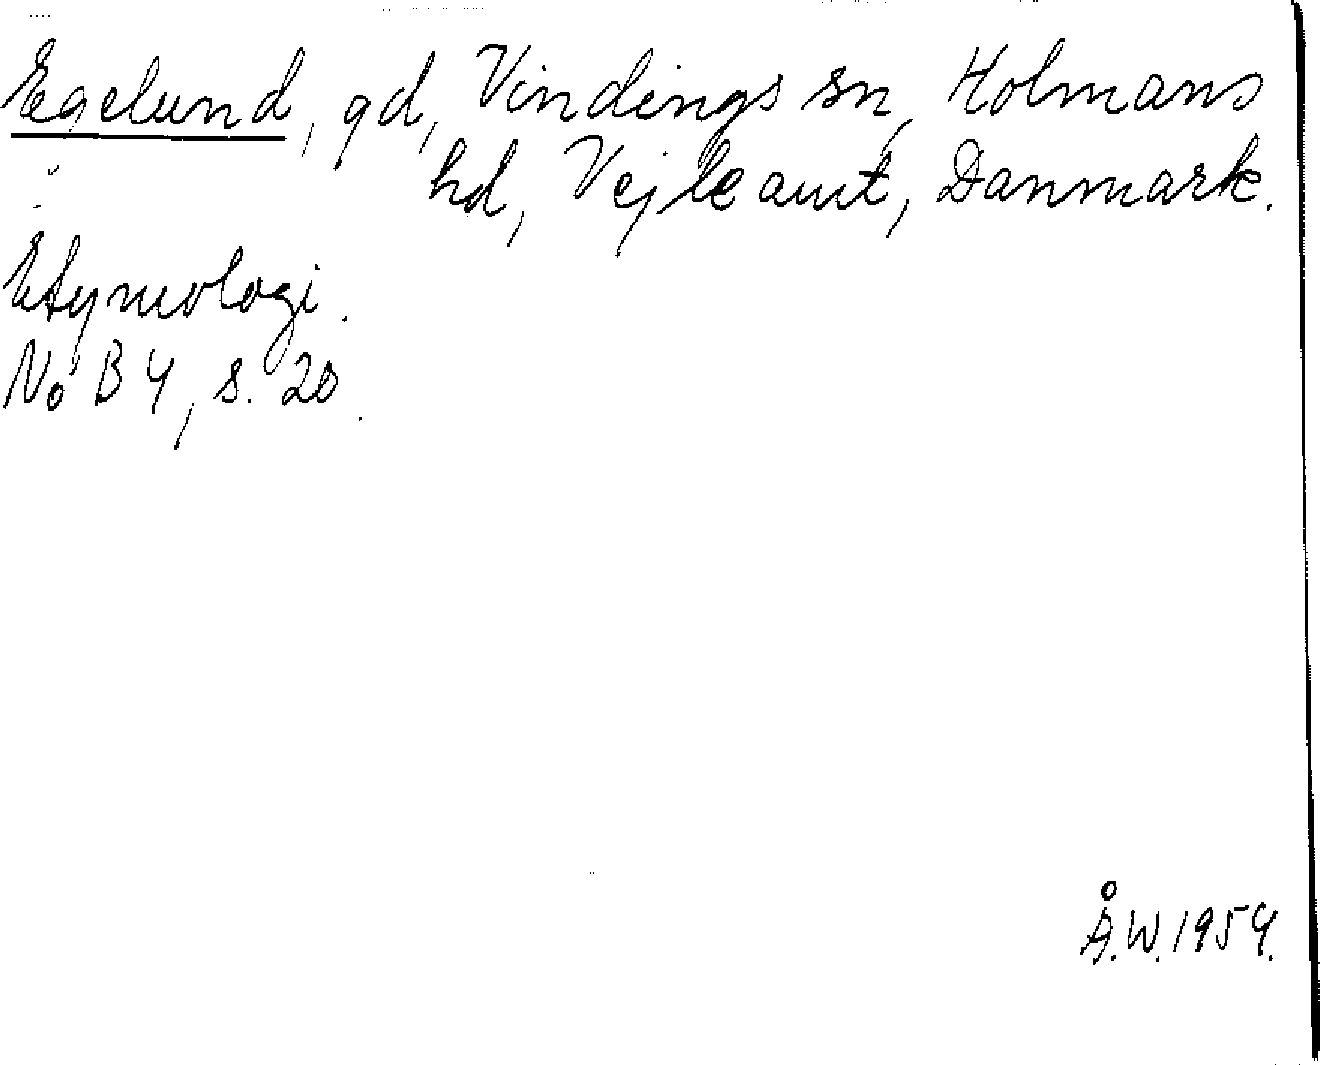 Egelund, gd, Vindings sn, Holmans
hd, Vejle amt, Danmark.
Etymologi.
NoB 4, s. 20.
Å.W. 1954.